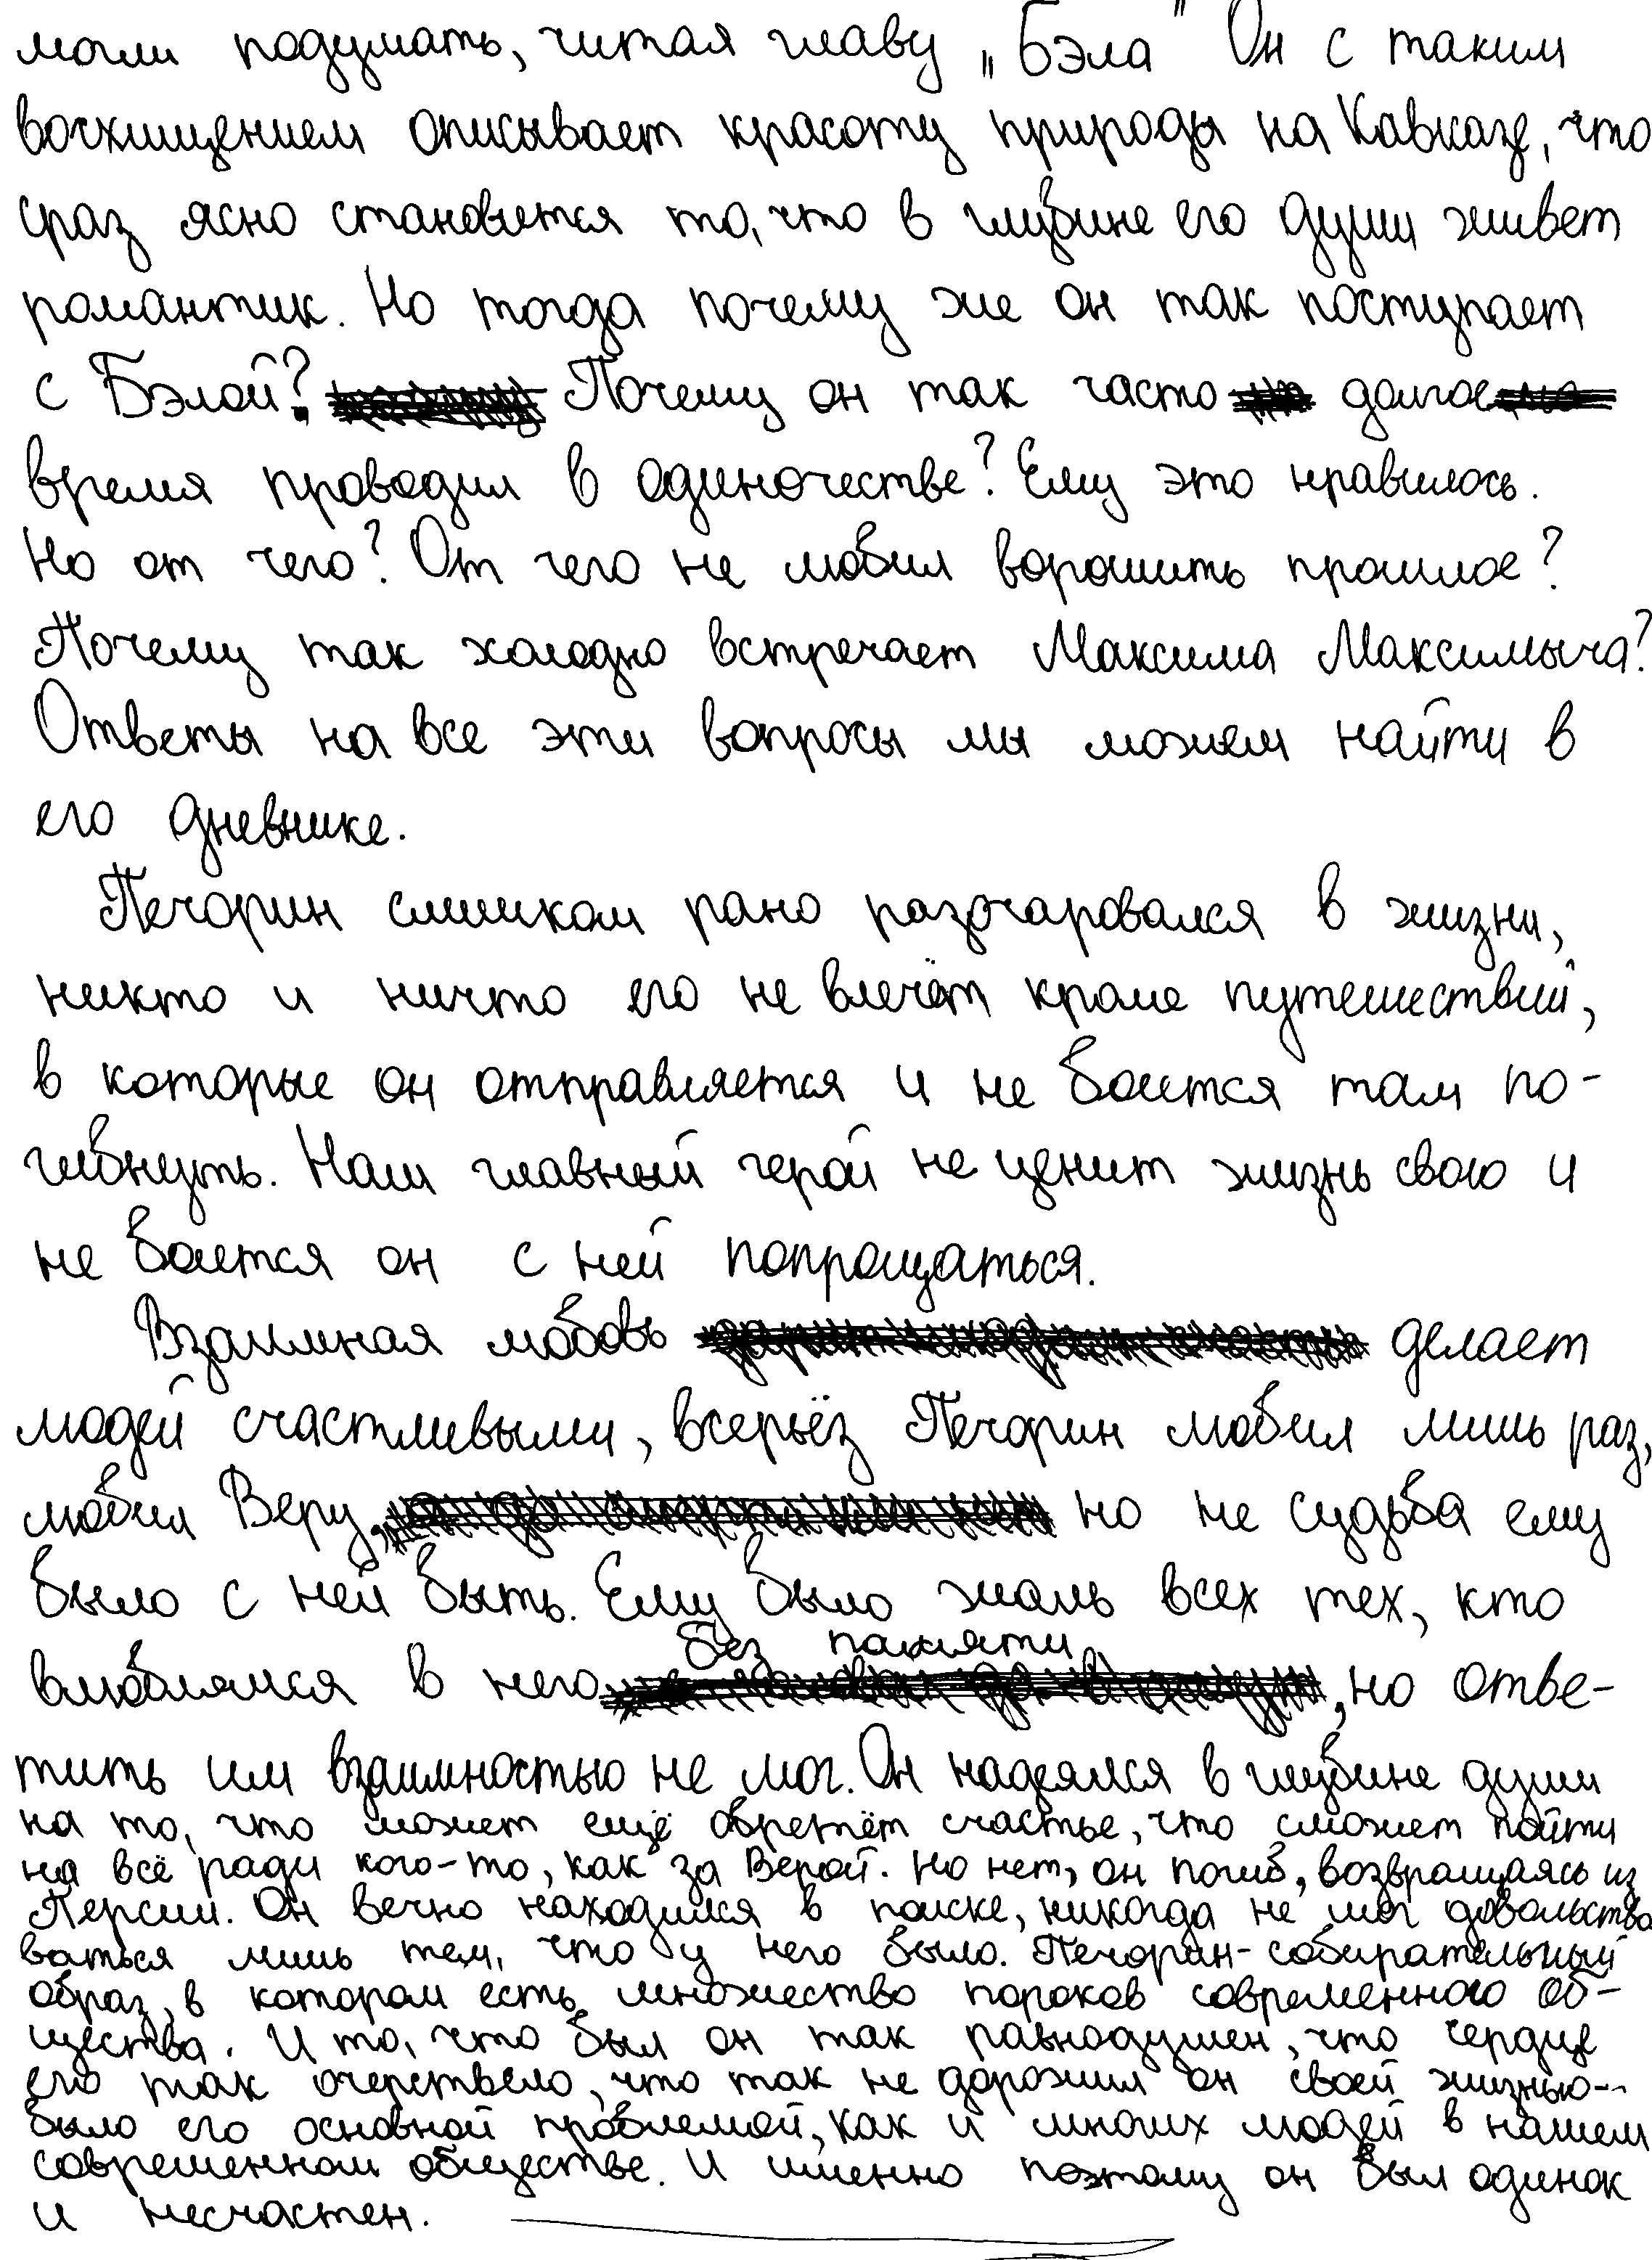 могли подумать, читая главу „Бэла" Он с таким
восхищением описывает красоту природы на Кавказе, что
сраз ясно становится то, что в глубине его души живет
романтик. Но тогда почему же он так поступает
с Бэлой? Почему он так часто долгое
время проводил в одиночестве? Ему это нравилось.
Но от чего? От чего не любил ворошить прошлое?
Почему так холодно встречает Максима Максимыча?
Ответы на все эти вопросы мы можем найти в
его дневнике.
Печорин слишком рано разочаровался в жизни,
никто и ничто его не влечёт кроме путешествий,
в которые он отправляется и не боится там по-
гибнуть. Наш главный герой не ценит жизнь свою и
не боится он с ней попрощаться.
Взаимная любовь делает
людей счастливыми, всерьёз Печорин любил лишь раз,
любил Веру, но не судьба ему
было с ней быть. Ему было жаль всех тех, кто
влюблялся в него без памяти, но отве-
тить им взаимностью не мог. Он надеялся в глубине души
на то, что может ещё обретёт счастье, что сможет пойти
на всё ради кого-то, как за Верой. Но нет, он погиб, возвращаясь из
Персии. Он вечно находился в поиске, никогда не мог довольство
ваться лишь тем, что у него было. Печорин - собирательный
образ, в котором есть множество пороков современного об-
щества. И то, что был он так равнодушен, что сердце
его так очерствело, что так не дорожил он своей жизнью --
было его основной проблемой, как и многих людей в нашем
современном обществе. И именно поэтому он был одинок
и несчастен.